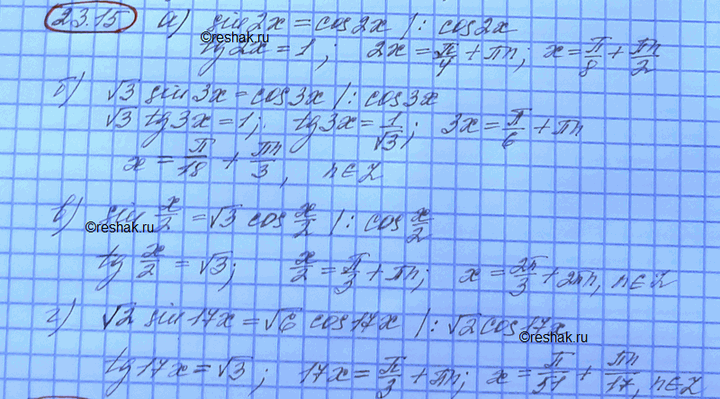 23.15 а) sin2x = cos2x /: cos2x
tg2x = 1; 2x = π/4 + πn; x = π/8 + πn/2
©reshak.ru
б) √3 sin3x = cos3x /: cos3x
©reshak.ru
√3 tg3x = 1; tg3x = 1/√3; 3x = π/6 + πn
x = π/18 + πn/3, n∈Z
в) sin x/2 = √3 cos x/2 /: cos x/2
©reshak.ru
tg x/2 = √3; x/2 = π/3 + πn; x = 2π/3 + 2πn, n∈Z
г) √2 sin17x = √6 cos17x /: √2 cos17x
©reshak.ru
tg17x = √3; 17x = π/3 + πn; x = π/51 + πn/17, n∈Z